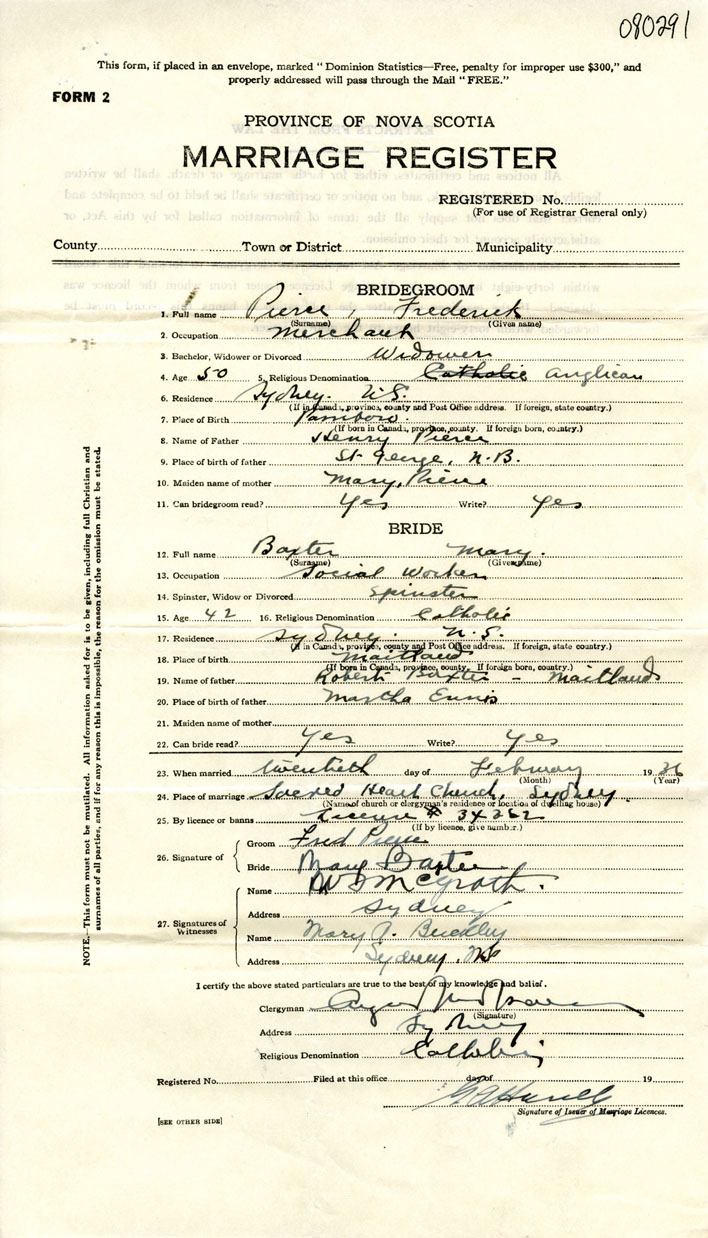 080291
This form, if placed in an envelope, marked "Dominion Statistics—Free, penalty for improper use $300," and
properly addressed will pass through the Mail "FREE."
FORM 2
PROVINCE OF NOVA SCOTIA
MARRIAGE REGISTER
REGISTERED No.
(For use of Registrar General only)
County Town or District Municipality
BRIDEGROOM
1. Full name Pierce, Frederick
(Surname) (Given name)
2. Occupation Merchant
3. Bachelor, Widower or Divorced Widower
4. Age 50 5. Religious Denomination Catholic Anglican
6. Residence Sydney. N.S.
(If in Canada, province, county and Post Office address. If foreign, state country.)
7. Place of Birth
(If born in Canada, province, county. If foreign born, country.)
8. Name of Father Henry Pierce
9. Place of birth of father St George, N.B.
10. Maiden name of mother Mary,
11. Can bridegroom read? Yes Write? Yes
BRIDE
12. Full name Baxter Mary.
(Surname) (Given name)
13. Occupation Social Worker
14. Spinster, Widow or Divorced Spinster
15. Age 42 16. Religious Denomination Catholic
17. Residence Sydney. N.S.
(If in Canada, province, county and Post Office address. If foreign, state country.)
18. Place of birth Maitland
(If born in Canada, province, county. If foreign born, country.)
19. Name of father Robert Baxter - Maitland
20. Place of birth of father Martha Ennis
21. Maiden name of mother
22. Can bride read? Yes Write? Yes
23. When married twentieth day of February 19 26
(Month) (Year)
24. Place of marriage Sacred Heart Church, Sydney
(Name of church or clergyman's residence or location of dwelling house)
25. By licence or banns License # 34262
(If by licence, give number.)
26. Signature of
Groom Fred Pierce
Bride Mary Baxter
27. Signatures of Witnesses
Name McGrath.
Address Sydney
Name Mary A. Buckley
Address Sydney, NS
I certify the above stated particulars are true to the best of my knowledge and belief.
Clergyman
(Signature)
Address Sydney
Religious Denomination Catholic
Registered No. Filed at this office day of 19
Signature of Issuer of Marriage Licences.
[SEE OTHER SIDE]
NOTE.—This form must not be mutilated. All information asked for is to be given, including full Christian and
surnames of all parties, and if for any reason this is impossible, the reason for the omission must be stated.